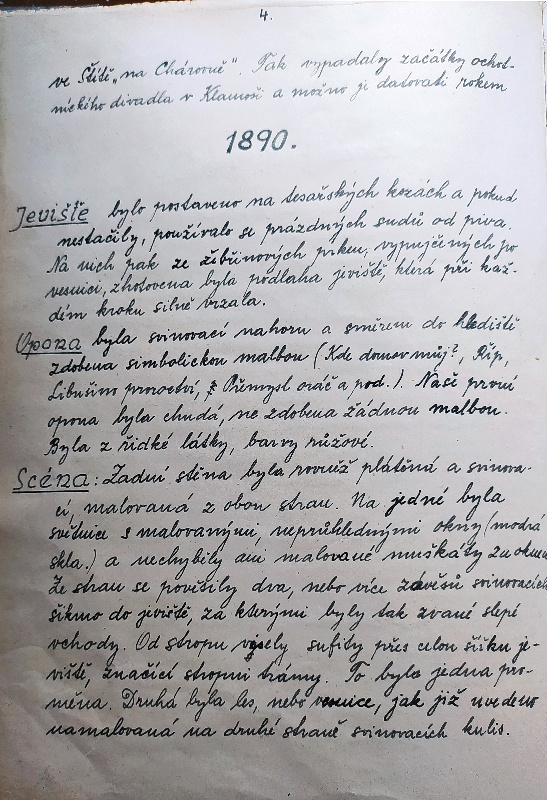 4.
ve Štítě „na Chárovně“. Tak vypadaly začátky ochot-
nického divadla v Klamoši a možno je datovati rokem
1890.
Jeviště bylo postaveno na tesařských kozách a pokud
nestačily, používalo se prázdných sudů od piva.
Na nich pak ze žebřinových prken, vypujčených po
vesnici, zhotovena byla podlaha jeviště, která při kaž-
dém kroku silně vrzala.
Opona byla svinovací nahoru a směrem do hlediště
zdobena simbolickou malbou (Kde domov můj?, Říp,
Libušino proroctví, Přemysl oráč a pod.). Naše první
opona byla chudá, ne zdobena žádnou malbou.
Byla z řídké látky, barvy růžové.
Scéna: Zadní stěna byla rovněž plátěná a svinova-
cí, malovaná z obou stran. Na jedné byla
světnice s malovanými, neprůhlednými okny (modrá
skla.) a nechybily ani malované muškáty za oknem
Ze stran se pověsily dva, nebo více závěsů svinovacích
šikmo do jeviště, za kterými byly tak zvané slepé
vchody. Od stropu visely sufity přes celou šířku je-
viště, značící stropní trámy. To byla jedna pro-
měna. Druhá byla les, nebo vesnice, jak již uvedeno
namalovaná na druhé straně svinovacích kulis.